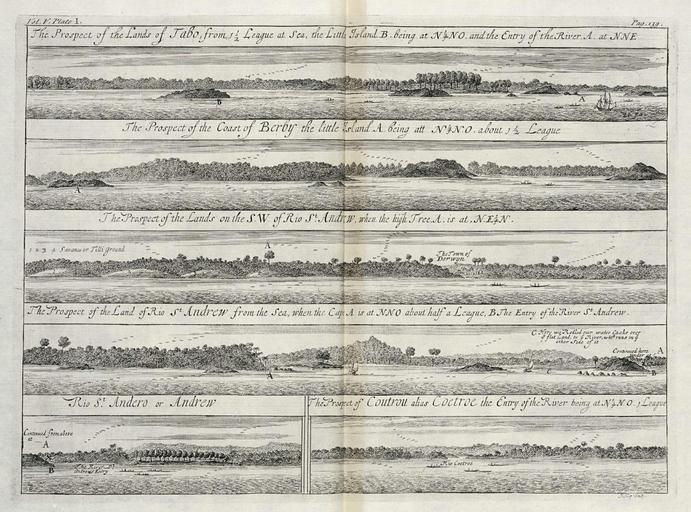 Vol. V. Plate 1.
Pag. 139.
The Prospect of the Lands of Tabo, from 1½ League at Sea, the Little Island B. being at N¼NO. and the Entry of the River A. at NNE
A
B
The Prospect of the Coast of Berby the little Island A. being att N¼NO. about 1½ League
A
The Prospect of the Lands on the S.W. of Rio St. Andrew, when the high Tree A. is at N.E¼N.
1 2 3 4 Savana or Till'd ground
A
The Town of
Derwyn
The Prospect of the Land of Rio St. Andrew from the Sea, when the Cap A is at NNO about half a League, B The Entry of the River St. Andrew.
C Here we Rolled our water Casks over
other Side of it
Continued here
A
B
A
C
Rio St. Andero or Andrew
The Prospect of Coutrou alias Coetroe the Entry of the River being at N¼NO. 1 League
Continued from above
at
A
B
Rio Coetroe